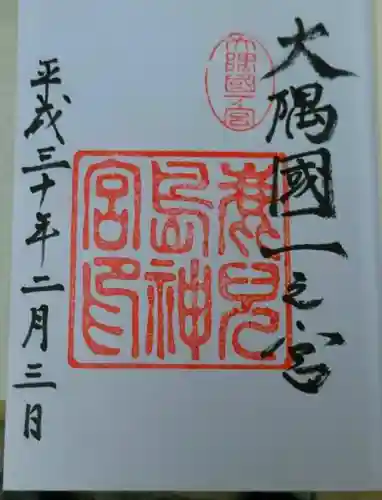 大隅國一之宮
大隅國一宮
鹿児
島神
宮印
平成三十年二月三日